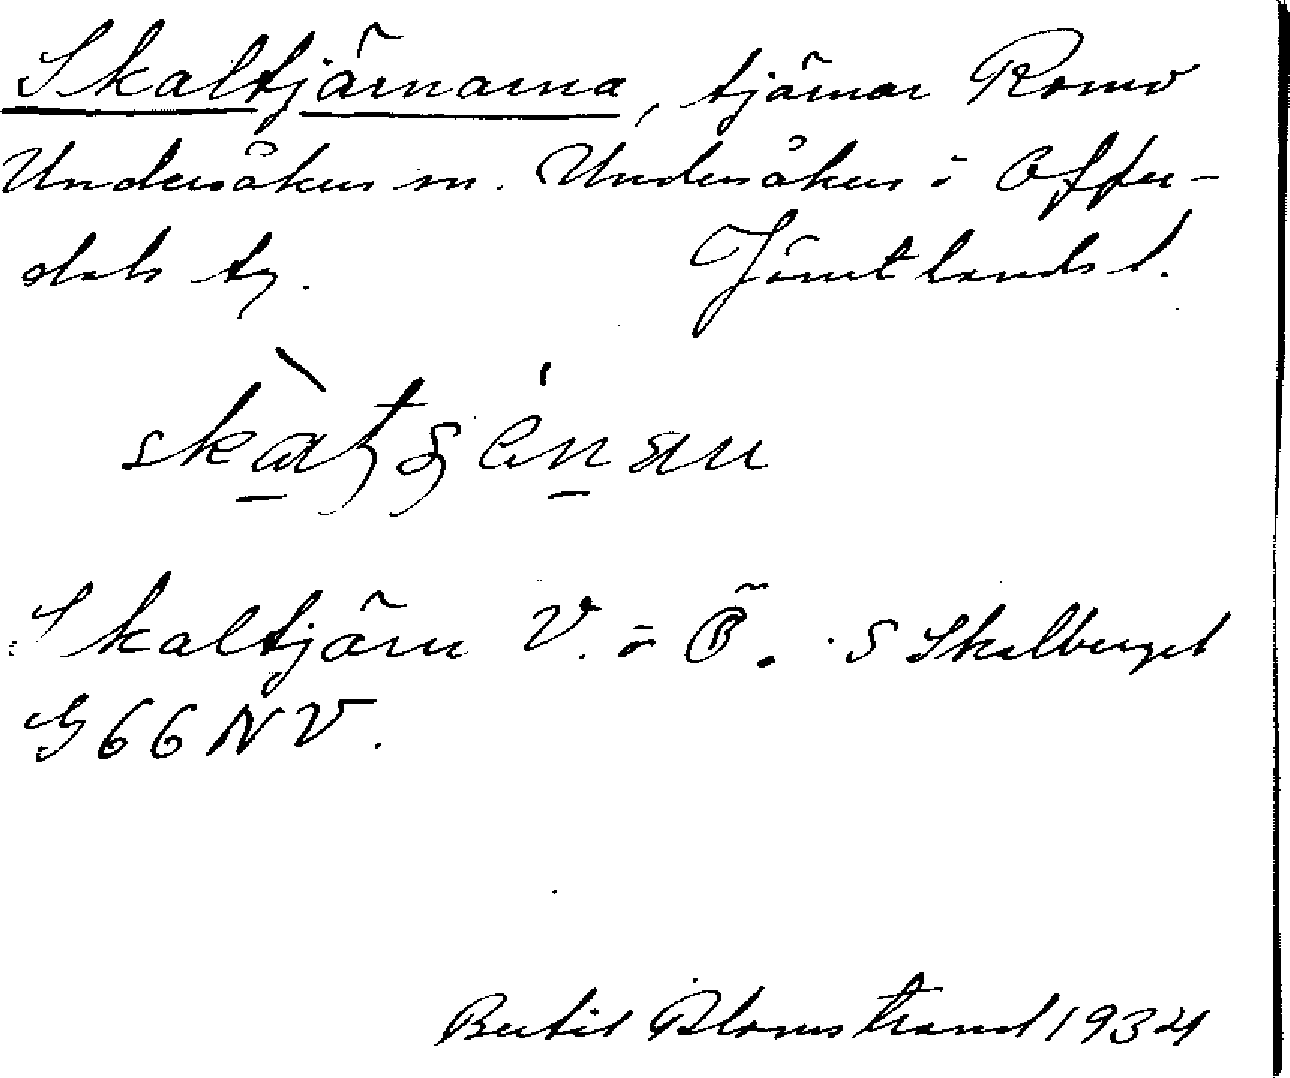 Skaltjärnarna, tjärnar Romo
Undersåkers sn. Undersåkers o Offer-
dals tg. Jämtlands l.
Skaltjärn V. o Ö. S Skalberget
G66NV.
Bertil Blomstrand 1934